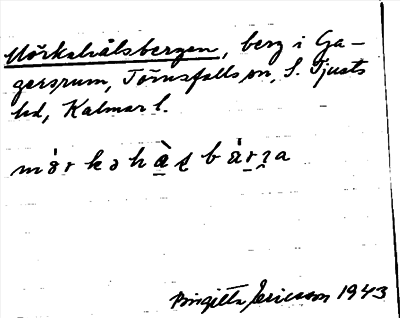 Mörkehålsbergen, berg i Ga-
gersrum, Törnsfalls sn, S. Tjusts
hd, Kalmar l.
Birgitta Ericsson 1943